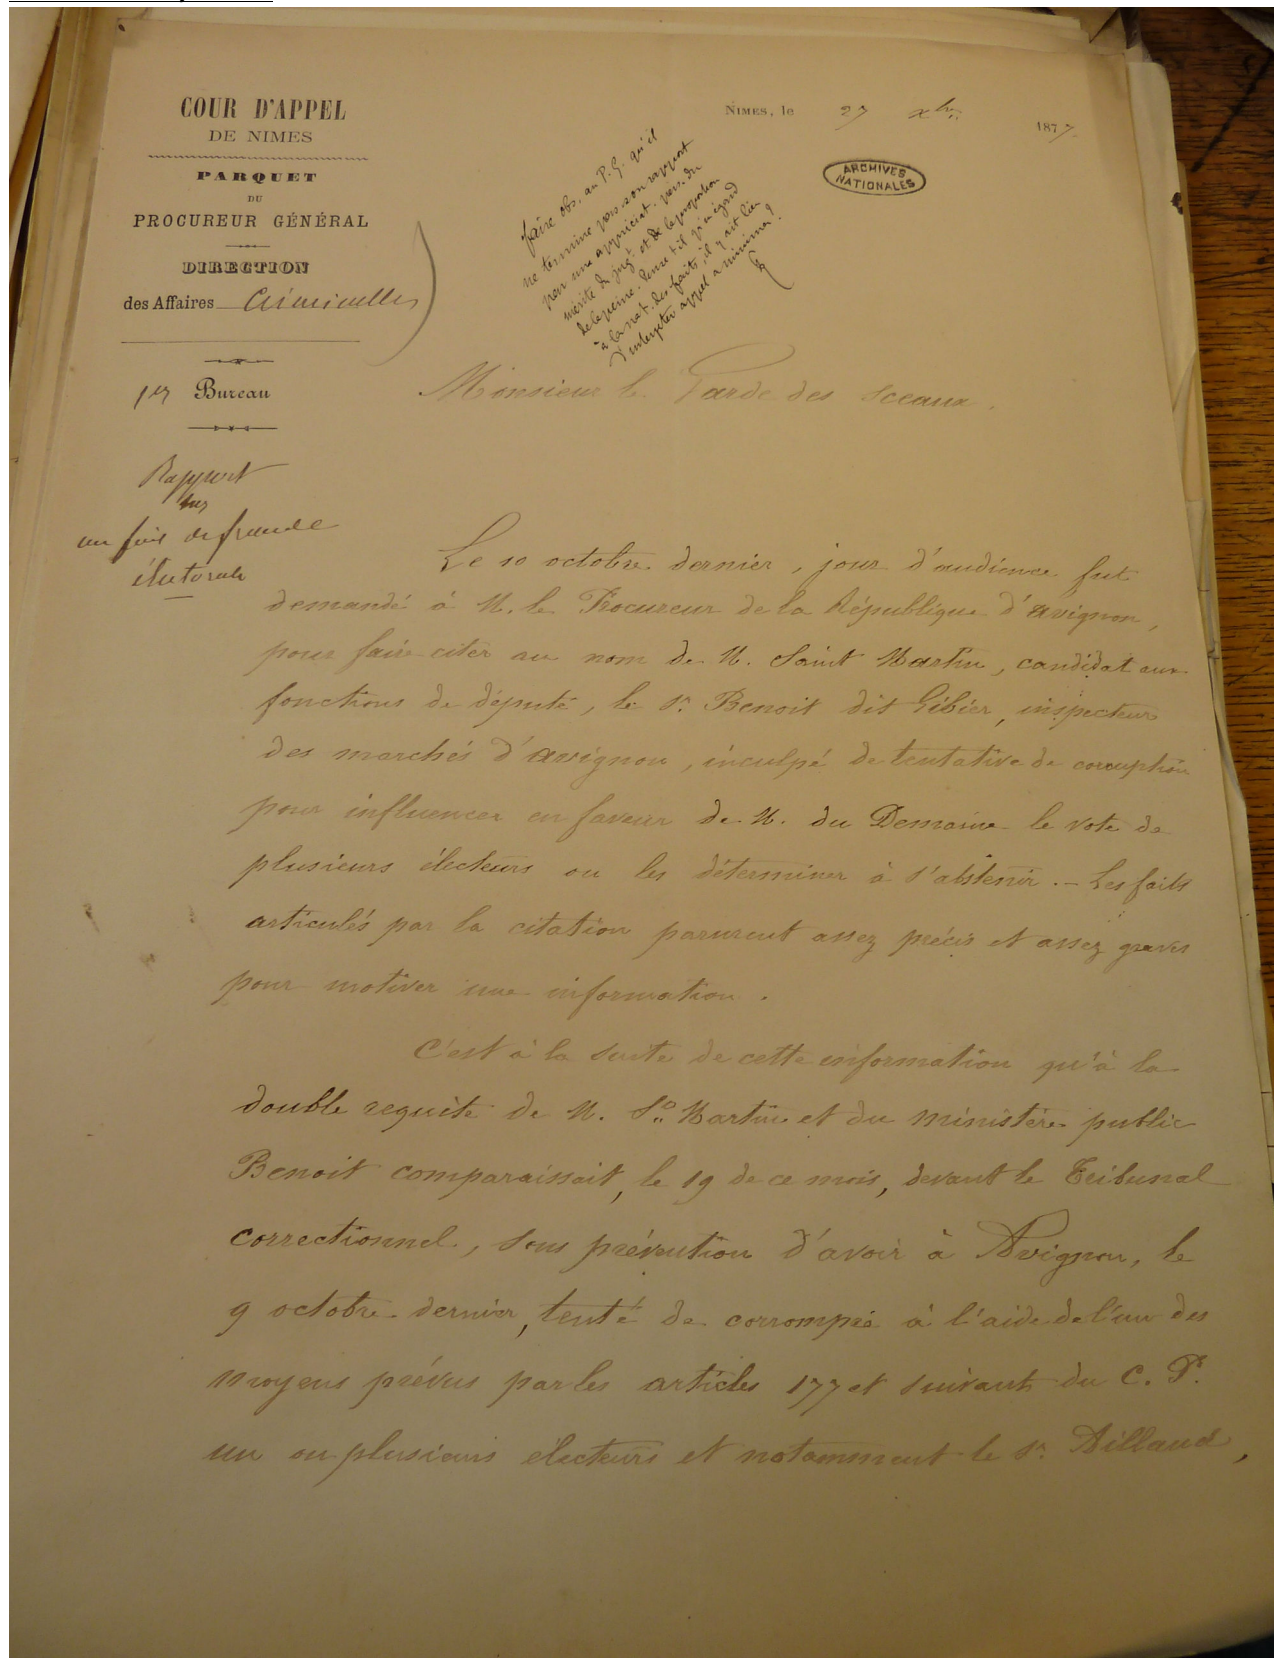 COUR D'APPEL
DE NIMES
PARQUET
DU
PROCUREUR GÉNÉRAL
DIRECTION
des Affaires Criminelles
1er Bureau
Rapport
sur
un fait de fraude
électorale
NIMES, le 27 Xbre 1877.
ARCHIVES
NATIONALES
faire obs. au P. G. qu'il
ne termine pas son rapport
par une appréciat. pers. du
mérite du jugt et de la proportion
de la peine. Pense-t-il qu'eu égard
à la nat. des faits, il y ait lieu
d'interjeter appel a minima?
Monsieur le Garde des Sceaux.
Le 10 octobre dernier, jour d'audience fut
demandé à M. le Procureur de la République d'Avignon,
pour faire citer au nom de M. Saint Martin, candidat aux
fonctions de député, le Sr. Benoit dit Gibier, inspecteur
des marchés d'Avignon, inculpé de tentative de corruption
pour influencer en faveur de M. du Demaine le vote de
plusieurs électeurs ou les déterminer à s'abstenir. - Les faits
articulés par la citation parurent assez précis et assez graves
pour motiver une information.
C'est à la suite de cette information qu'à la
double requête de M. St. Martin et du ministère public
Benoit comparaissait, le 19 de ce mois, devant le Tribunal
correctionnel, sous prévention d'avoir à Avignon, le
9 octobre dernier, tenté de corrompre à l'aide de l'un des
moyens prévus par les articles 177 et suivants du C. P.
un ou plusieurs électeurs et notamment le Sr. Aillaud,